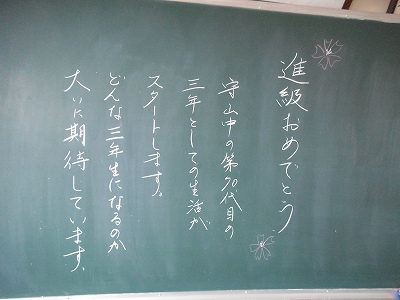 進級おめでとう
守山中の第70代目の
三年としての生活が
スタートします。
どんな三年生になるのか
大いに期待しています。